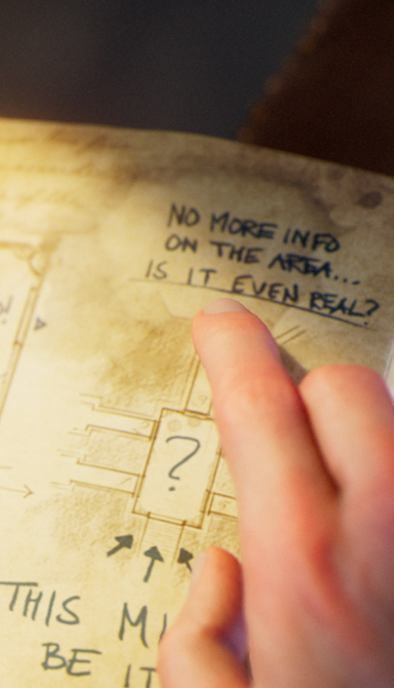 NO MORE INFO
ON THE AREA...
IS IT EVEN REAL?
?
THIS
BE IT